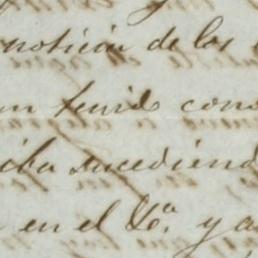 noticia de las
tenido cono
iba sucediend
en el Sr. y a